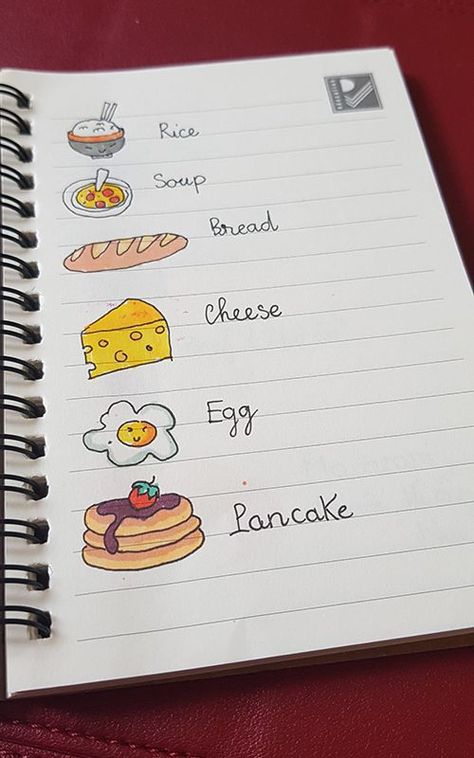 Rice
Soup
Bread
Cheese
Egg
Pancake